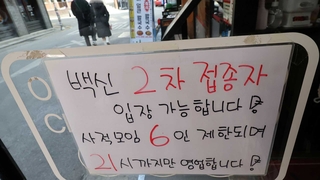 백신 2차 접종자
입장 가능합니다
사적모임 6인 제한되며
21시까지만 영업합니다